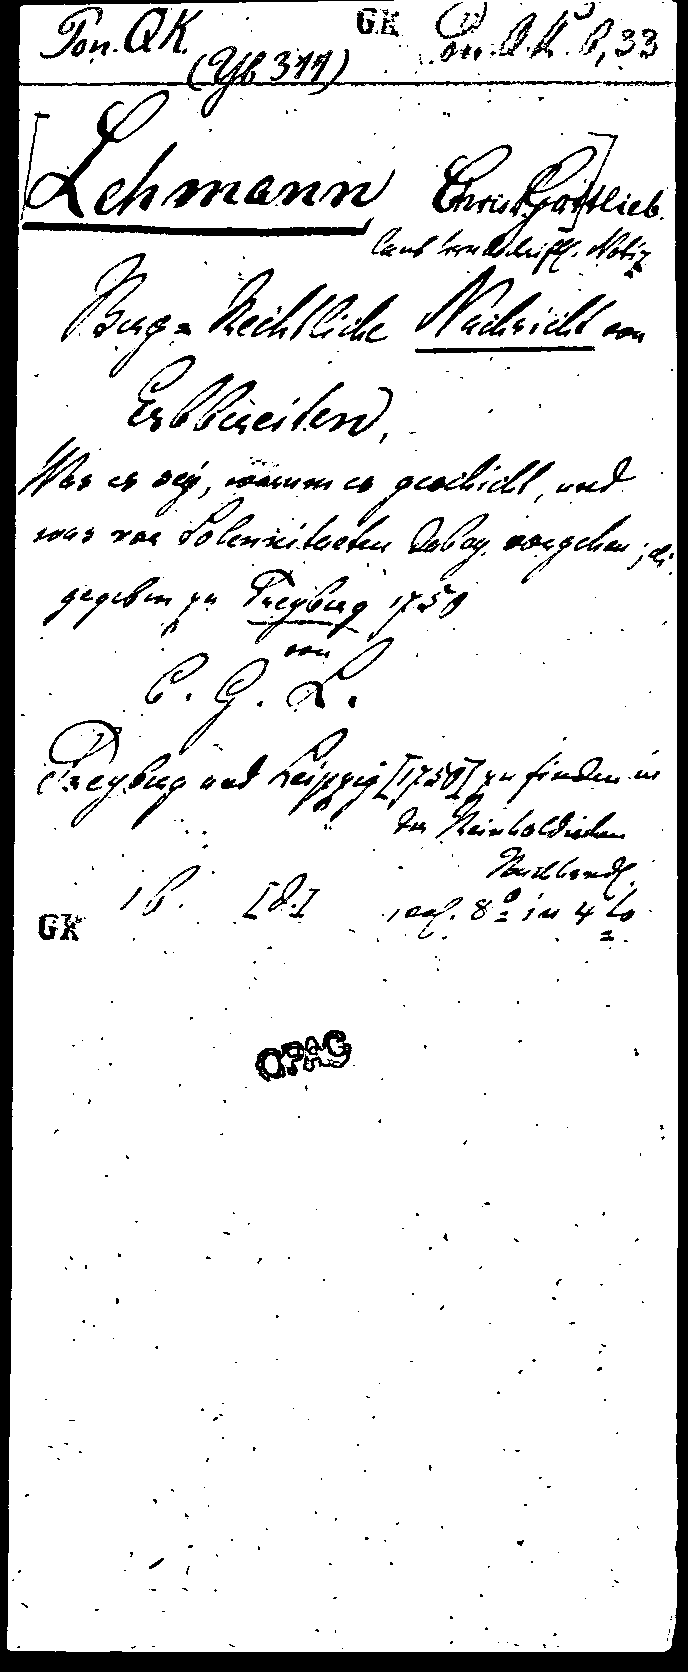 Pon. QK. GK Pon. Q.K. 6, 33
(Yb 3
[Lehmann, Christ. Gottlieb.]
laut handschriftl. Notiz
Berg-Rechtliche Nachricht von
Erbbereiten,
Was es sey, warum es geschicht, und
was vor Solennitaeten dabey vorgehen;
gegeben zu Freyberg 1750
von
C. G. L.
Freyberg und Leipzig [1750] zu finden in
der Reinholdischen
Buchhandl.
GK
8° in 4to
OPAG